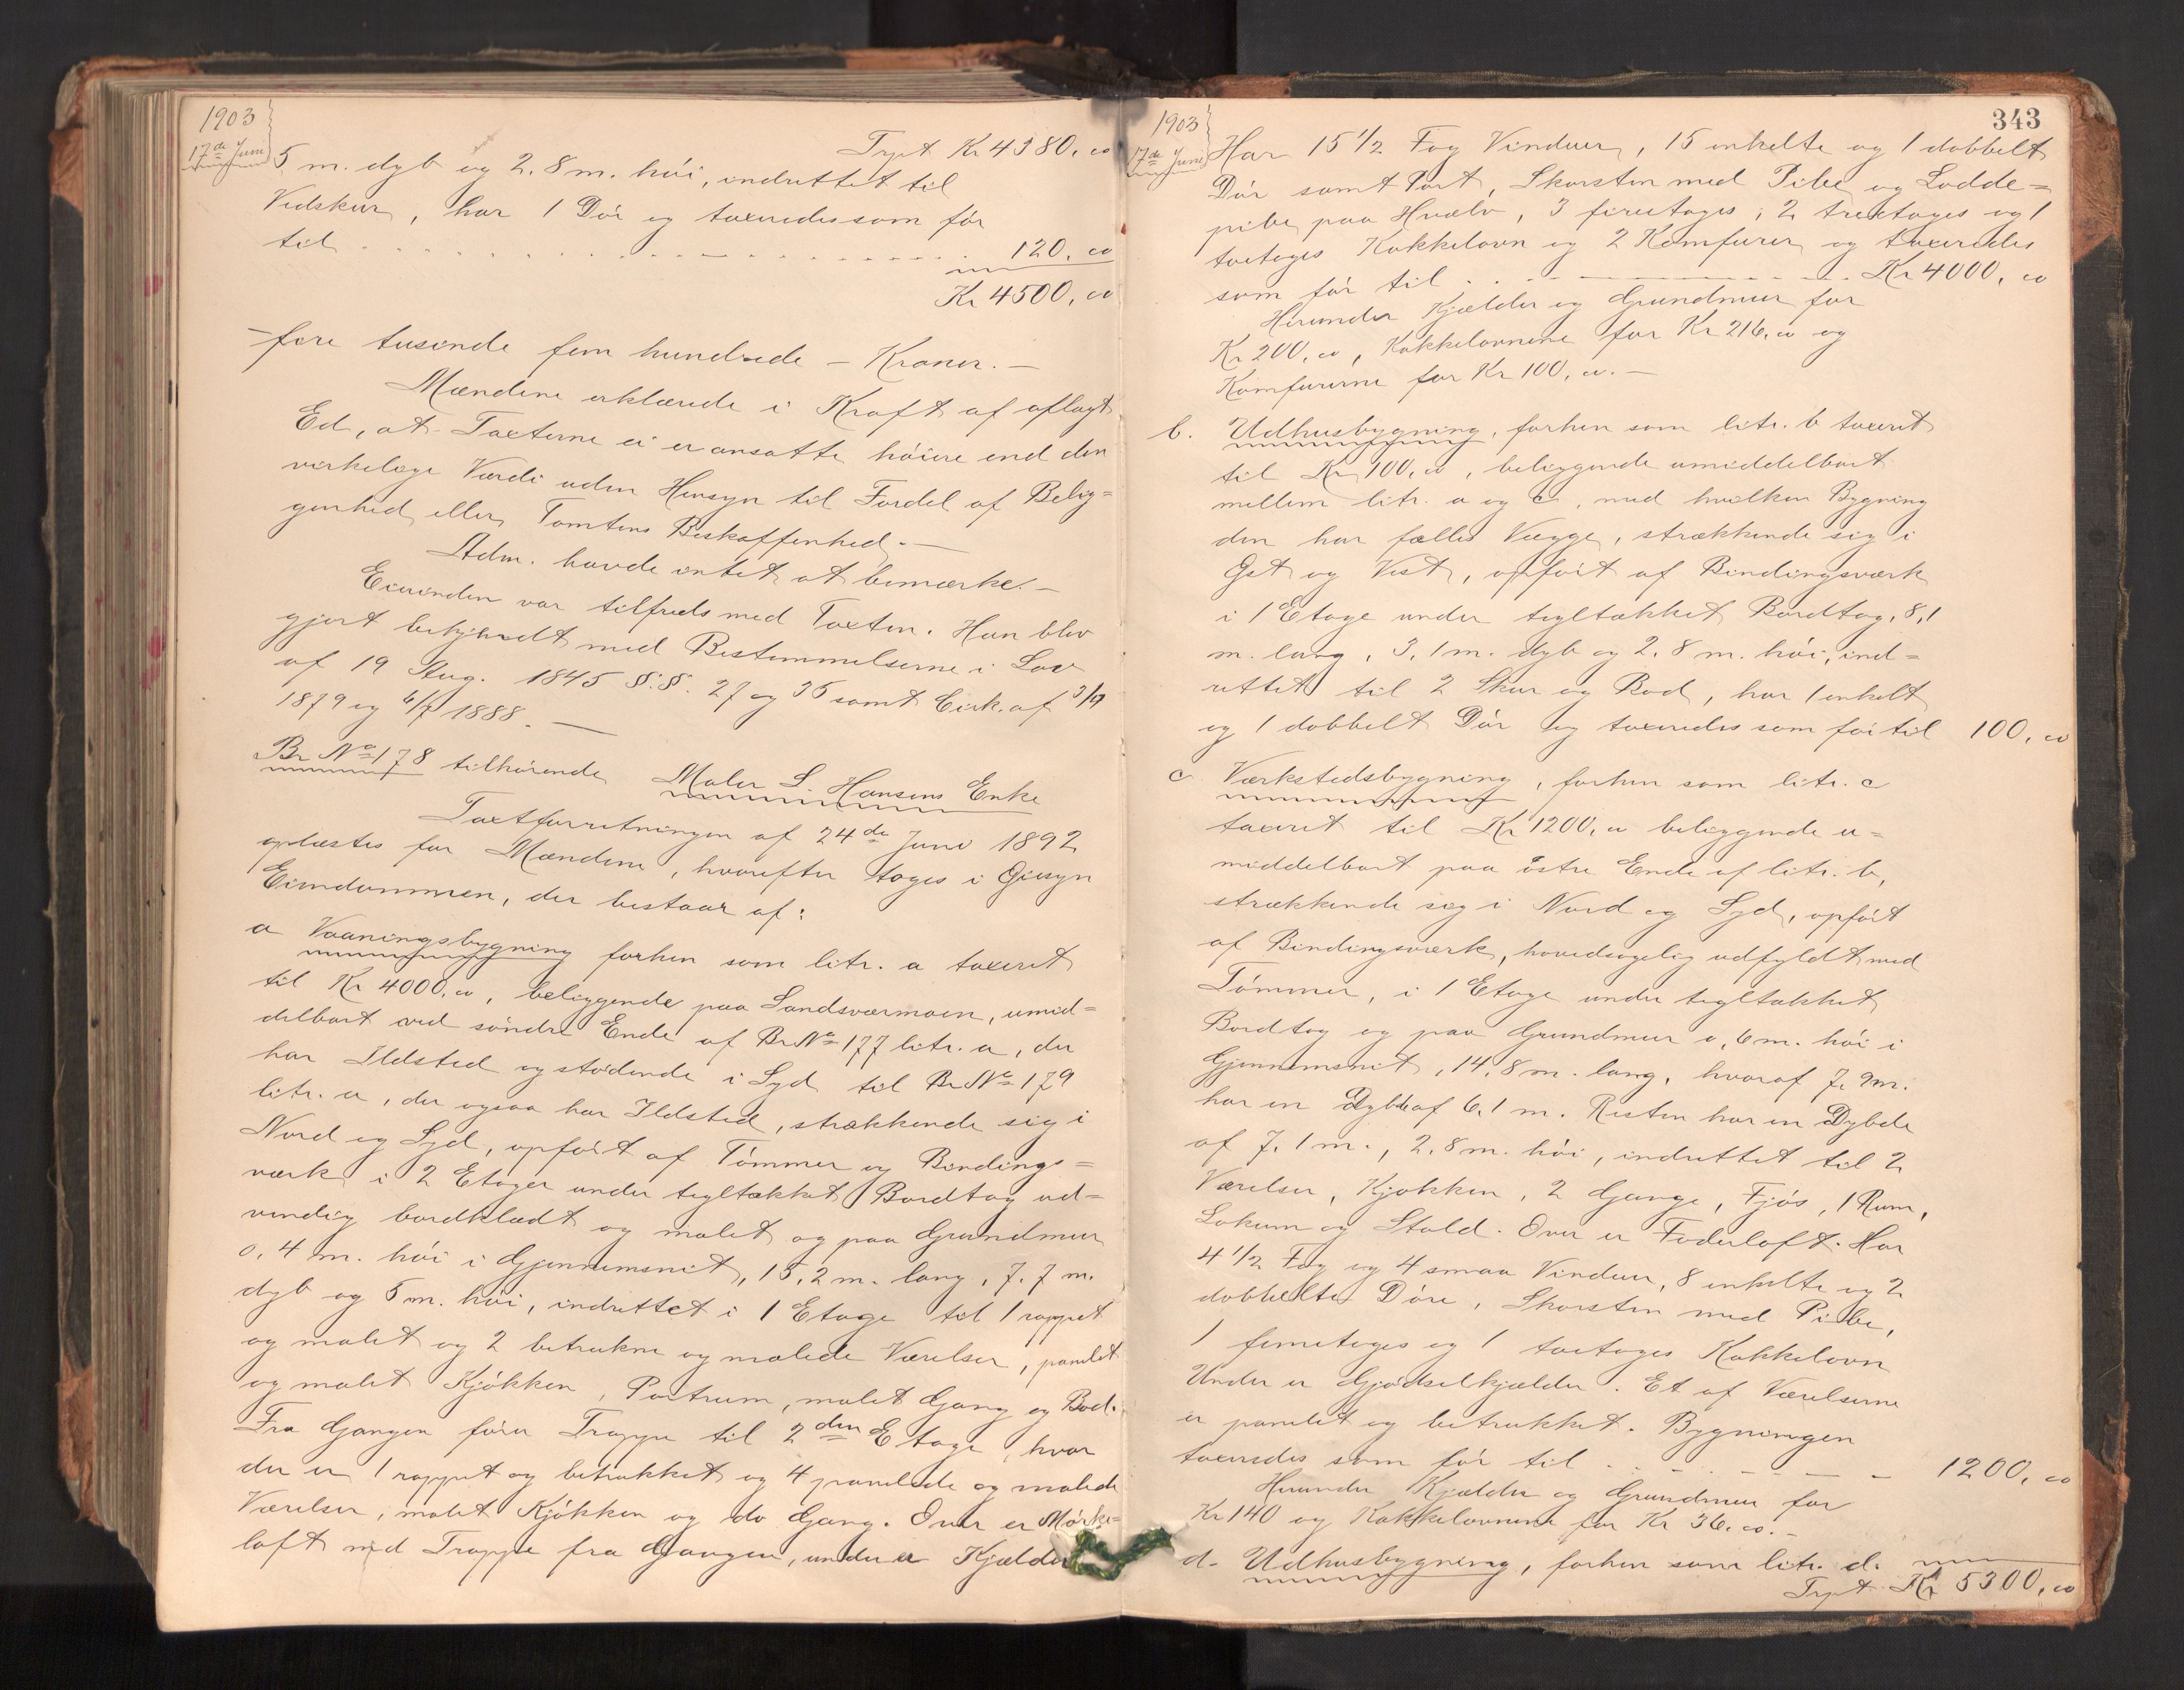 1903
17de Juni
Trpt Kr 4380, oo
5 m. dyb og 2.8 m. høi, indrettet til
Vedskur, har 1 Dør og taxeredes som før
til . . . . . . . . . . 120, oo
Kr 4500, oo
– fire tusende fem hundrede – Kroner. –
Mændene erklærede i Kraft af aflagt
Ed, at Taxterne ei er ansatte høiere end den
virkelige Værdi uden Hensyn til Fordel af Belig=
genhed eller Tomtens Beskaffenhed. –
Adm. havde intet at bemærke. –
Eierinden var tilfreds med Taxten. Hun blev
gjort bekjendt med Bestemmelserne i Lov
af 19 Aug. 1845 §.§. 27 og 35 samt Cirk. af 3/10
1879 og 6/7 1888. –
Br No 178 tilhørende Maler L. Hansens Enke
Taxtforretningen af 24de Juni 1892
oplæstes for Mændene, hvorefter toges i Øiesyn
Eiendommen, der bestaar af:
a Vaaningsbygning forhen som litr. a taxeret
til Kr 4000, oo, beliggende paa Sandsværmoen, umid=
delbart ved søndre Ende af Br No 177 litr. a, der
har Ildsted og stødende i Syd til Br No 179
litr. a, der ogsaa har Ildsted, strækkende sig i
Nord og Syd, opført af Tømmer og Bindings=
værk i 2 Etager under tegltækket Bordtag ud=
vendig bordklædt og malet og paa Grundmur
0.4 m. høi i Gjennemsnit, 15,2 m. lang, 7.7 m.
dyb og 5 m. høi, indrettet i 1 Etage til 1 rappet
og malet og 2 betrukne og malede Værelser, panelet
og malet Kjøkken, Portrum, malet Gang og Bod.
Fra Gangen fører Trappe til 2den Etage, hvor
der er 1 rappet og betrukket og 4 panelede og malede
Værelser, malet Kjøkken og do Gang. Over er Mørke=
loft med Trappe fra Gangen, under er Kjælder
343
1903
17de Juni
Har 15 1/2 Fag Vinduer, 15 enkelte og 1 dobbelt
Dør samt Port, Skorsten med Pibe og Lodde=
pibe paa Hvælv, 3 fireetages, 2 treetages og 1
toetages Kakkelovn og 2 Komfurer og taxeredes
som før til . . . . . Kr 4000, oo
Herunder Kjælder og Grundmur for
Kr 200, oo, Kakkelovnene for Kr 216, oo og
Komfurerne for Kr 100, oo. –
b. Udhusbygning, forhen som litr. b taxeret
til Kr 100, oo, beliggende umiddelbart
mellem litr. a og c, med hvilken Bygning
den har fælles Vægge, strækkende sig i
Øst og Vest, opført af Bindingsværk
i 1 Etage under tegltækket Bordtag, 8,1
m. lang, 3,1 m. dyb og 2.8 m. høi, ind=
rettet til 2 Skur og Bod, har 1 enkelt
og 1 dobbelt Dør og taxeredes som før til 100, oo
c Værkstedsbygning, forhen som litr. c
taxeret til Kr 1200, oo beliggende u=
middelbart paa østre Ende af litr. b,
strækkende sig i Nord og Syd, opført
af Bindingsværk, hovedsagelig udfyldt med
Tømmer, i 1 Etage under tegltækket
Bordtag og paa Grundmur 0,6 m. høi i
Gjennemsnit, 14,8 m. lang, hvoraf 7.9 m.
har en Dybde af 6,1 m. Resten har en Dybde
af 7.1 m., 2.8 m. høi, indrettet til 2
Værelser, Kjøkken, 2 Gange, Fjøs, 1 Rum,
Lokum og Stald. Over er Foderloft. Har
4 1/2 Fag og 4 smaa Vinduer, 8 enkelte og 2
dobbelte Døre, Skorsten med Pibe,
1 femetages og 1 toetages Kakkelovn
Under er Gjødselkjælder. Et af Værelserne
er panelet og betrukket. Bygningen
taxeredes som før til . . . . . 1200, oo
Herunder Kjælder og Grundmur for
Kr 140 og Kakkelovnene for Kr 36, oo. –
d. Udhusbygning, forhen som litr. d.
Trpt Kr 5300, oo